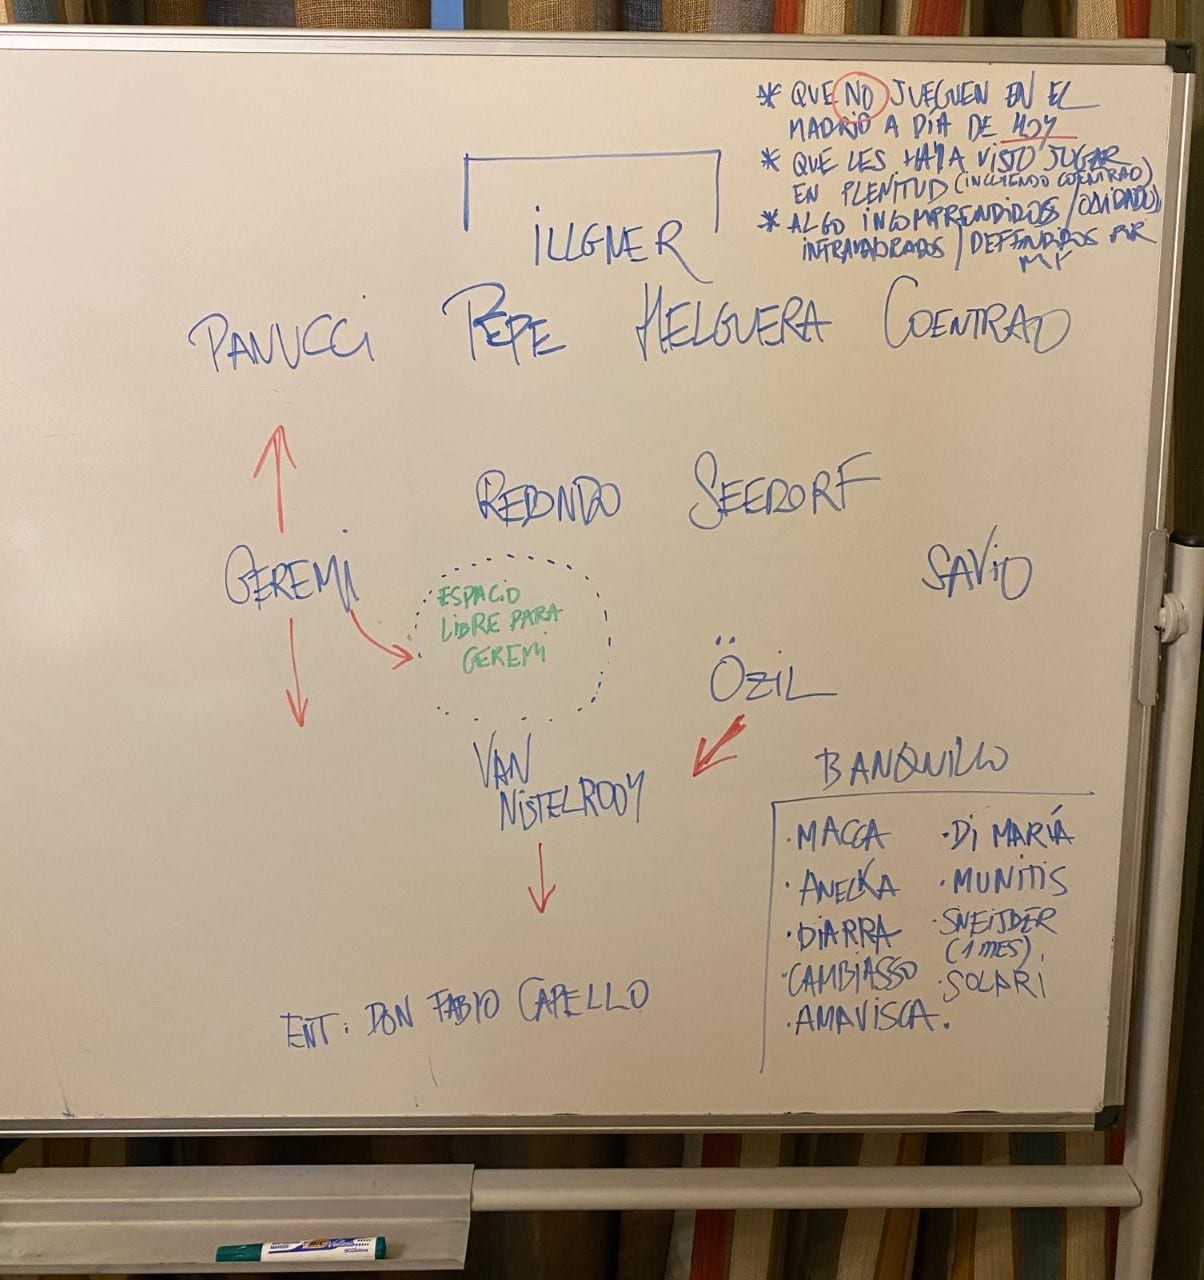 * QUE NO JUEGUEN EN EL
MADRID A DÍA DE HOY
* QUE LES HAYA VISTO JUGAR
EN PLENITUD (INCLUIENDO COENTRAO)
* ALGO INCOMPRENDIDOS / OLVIDADOS,
INFRAVALORADOS / DEFENDIDOS POR
MÍ
iLLGNER
PANUCCi PEPE HELGUERA COENTRAO
REDONDO SEEDORF
GEREMi
SAViO
ESPACiO
LiBRE PARA
GEREMi
ÖZiL
VAN
NiSTELROOY
BANQUiLLO
· MACCA
· ANELKA
· DiARRA
· CAMBiASSO
· AMAViSCA.
· Di MARÍA
· MUNiTiS
· SNEiJDER
(1 MES).
· SOLARi
ENT: DON FABiO CAPELLO
BIC Velleda